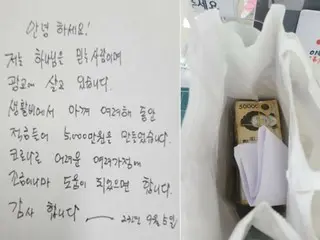 안녕 하세요!
저는 하나님은 믿는 사람이며
광교에 살고 있습니다.
생활비에서 아껴 여러해 동안
적금들어 5,000만원은 만들었습니다.
코로나로 어려운 여러가정에
조금이나마 도움이 되었으면 합니다.
감사 합니다
2021년 9월 5일
50000